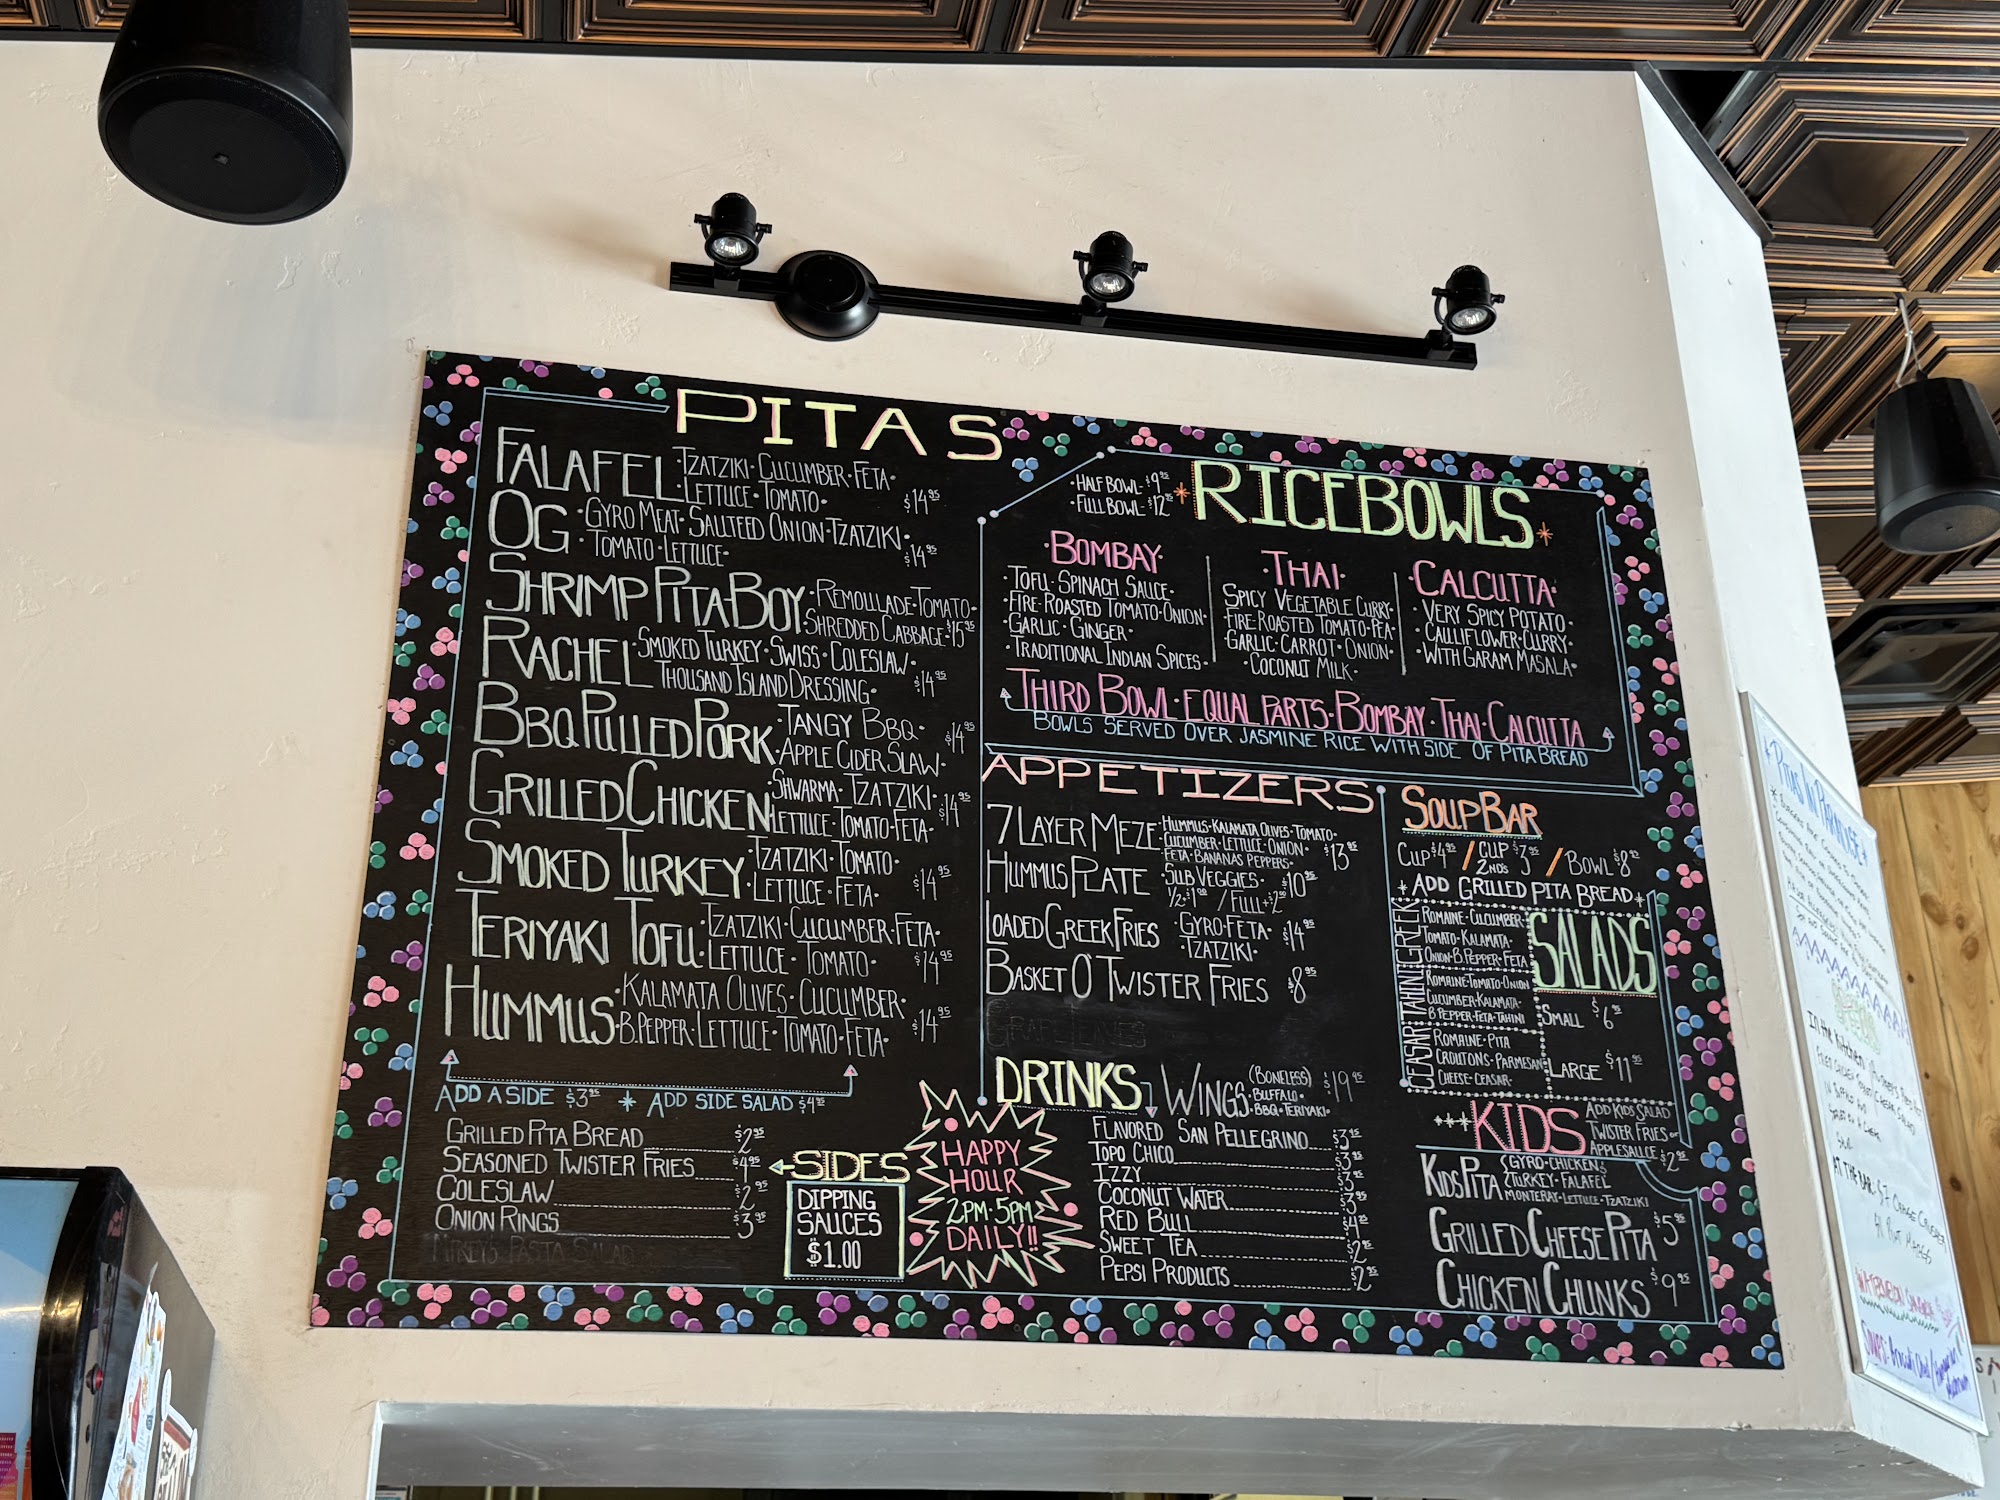 PITAS
FALAFEL ·TZATZIKI·CUCUMBER·FETA·
·LETTUCE·TOMATO· $14.95
OG ·GYRO MEAT·SAUTEED ONION·TZATZIKI·
·TOMATO·LETTUCE· $14.95
SHRIMP PITA BOY ·REMOULLADE·TOMATO·
·SHREDDED CABBAGE· $15.95
RACHEL ·SMOKED TURKEY·SWISS·COLESLAW·
·THOUSAND ISLAND DRESSING· $14.95
BBQ PULLED PORK ·TANGY BBQ·
·APPLE CIDER SLAW· $14.95
GRILLED CHICKEN ·SHWARMA·TZATZIKI·
·LETTUCE·TOMATO·FETA· $14.95
SMOKED TURKEY ·TZATZIKI·TOMATO·
·LETTUCE·FETA· $14.95
TERIYAKI TOFU ·TZATZIKI·CUCUMBER·FETA·
·LETTUCE·TOMATO· $14.95
HUMMUS ·KALAMATA OLIVES·CUCUMBER·
·B.PEPPER·LETTUCE·TOMATO·FETA· $14.95
ADD A SIDE $3.95 * ADD SIDE SALAD $4.95
GRILLED PITA BREAD $2.95
SEASONED TWISTER FRIES $4.95
COLESLAW $2.95
ONION RINGS $3.95
PASTA SALAD
SIDES
DIPPING
SAUCES
$1.00
HAPPY
HOUR
2PM-5PM
DAILY!!
·HALF BOWL- $9.95
·FULL BOWL- $12.95
*RICEBOWLS*
·BOMBAY·
·TOFU·SPINACH SAUCE·
·FIRE·ROASTED TOMATO·ONION·
·GARLIC·GINGER·
·TRADITIONAL INDIAN SPICES·
·THAI·
SPICY VEGETABLE CURRY·
·FIRE·ROASTED TOMATO·PEA·
·GARLIC·CARROT·ONION·
·COCONUT MILK·
·CALCUTTA·
·VERY SPICY POTATO·
·CAULIFLOWER·CURRY·
·WITH GARAM MASALA·
THIRD BOWL·EQUAL PARTS·BOMBAY·THAI·CALCUTTA
BOWLS SERVED OVER JASMINE RICE WITH SIDE OF PITA BREAD
APPETIZERS
7 LAYER MEZE ·HUMMUS·KALAMATA OLIVES·TOMATO·
·CUCUMBER·LETTUCE·ONION·
·FETA·BANANAS PEPPERS· $13.95
HUMMUS PLATE ·SUB VEGGIES· $10.95
1/2+$1.00 / FULL+$2.00
LOADED GREEK FRIES ·GYRO·FETA·
·TZATZIKI· $14.95
BASKET O' TWISTER FRIES $8.95
GRAPE LEAVES
WINGS (BONELESS) $19.95
·BUFFALO·
·BBQ·TERIYAKI·
DRINKS
FLAVORED SAN PELLEGRINO $3.95
TOPO CHICO $3.95
IZZY $3.95
COCONUT WATER $3.95
RED BULL $4.25
SWEET TEA $2.95
PEPSI PRODUCTS $2.95
SOUP BAR
CUP $4.95 / CUP 2NDS $3.95 / BOWL $8.95
*ADD GRILLED PITA BREAD*
SALADS
GREEK
ROMAINE·CUCUMBER·
TOMATO·KALAMATA·
ONION·B.PEPPER·FETA
TAHINI
ROMAINE·TOMATO·ONION
CUCUMBER·KALAMATA·
B.PEPPER·FETA·TAHINI
CEASAR
ROMAINE·PITA
CROUTONS·PARMESAN
CHEESE·CEASAR·
SMALL $6.95
LARGE $11.95
***KIDS
ADD KIDS SALAD
TWISTER FRIES OR
APPLESAUCE $2.95
KIDS PITA GYRO·CHICKEN
TURKEY·FALAFEL
MONTERAY·LETTUCE·TZATZIKI
GRILLED CHEESE PITA $5.95
CHICKEN CHUNKS $9.95
*PITAS IN PARADISE*
IN THE KITCHEN:
AT THE BAR: